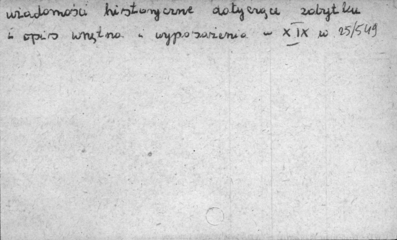 wiadomości historyczne dotyczące zabytku
i opis wnętrza i wyposażenia w XIX w 25/549